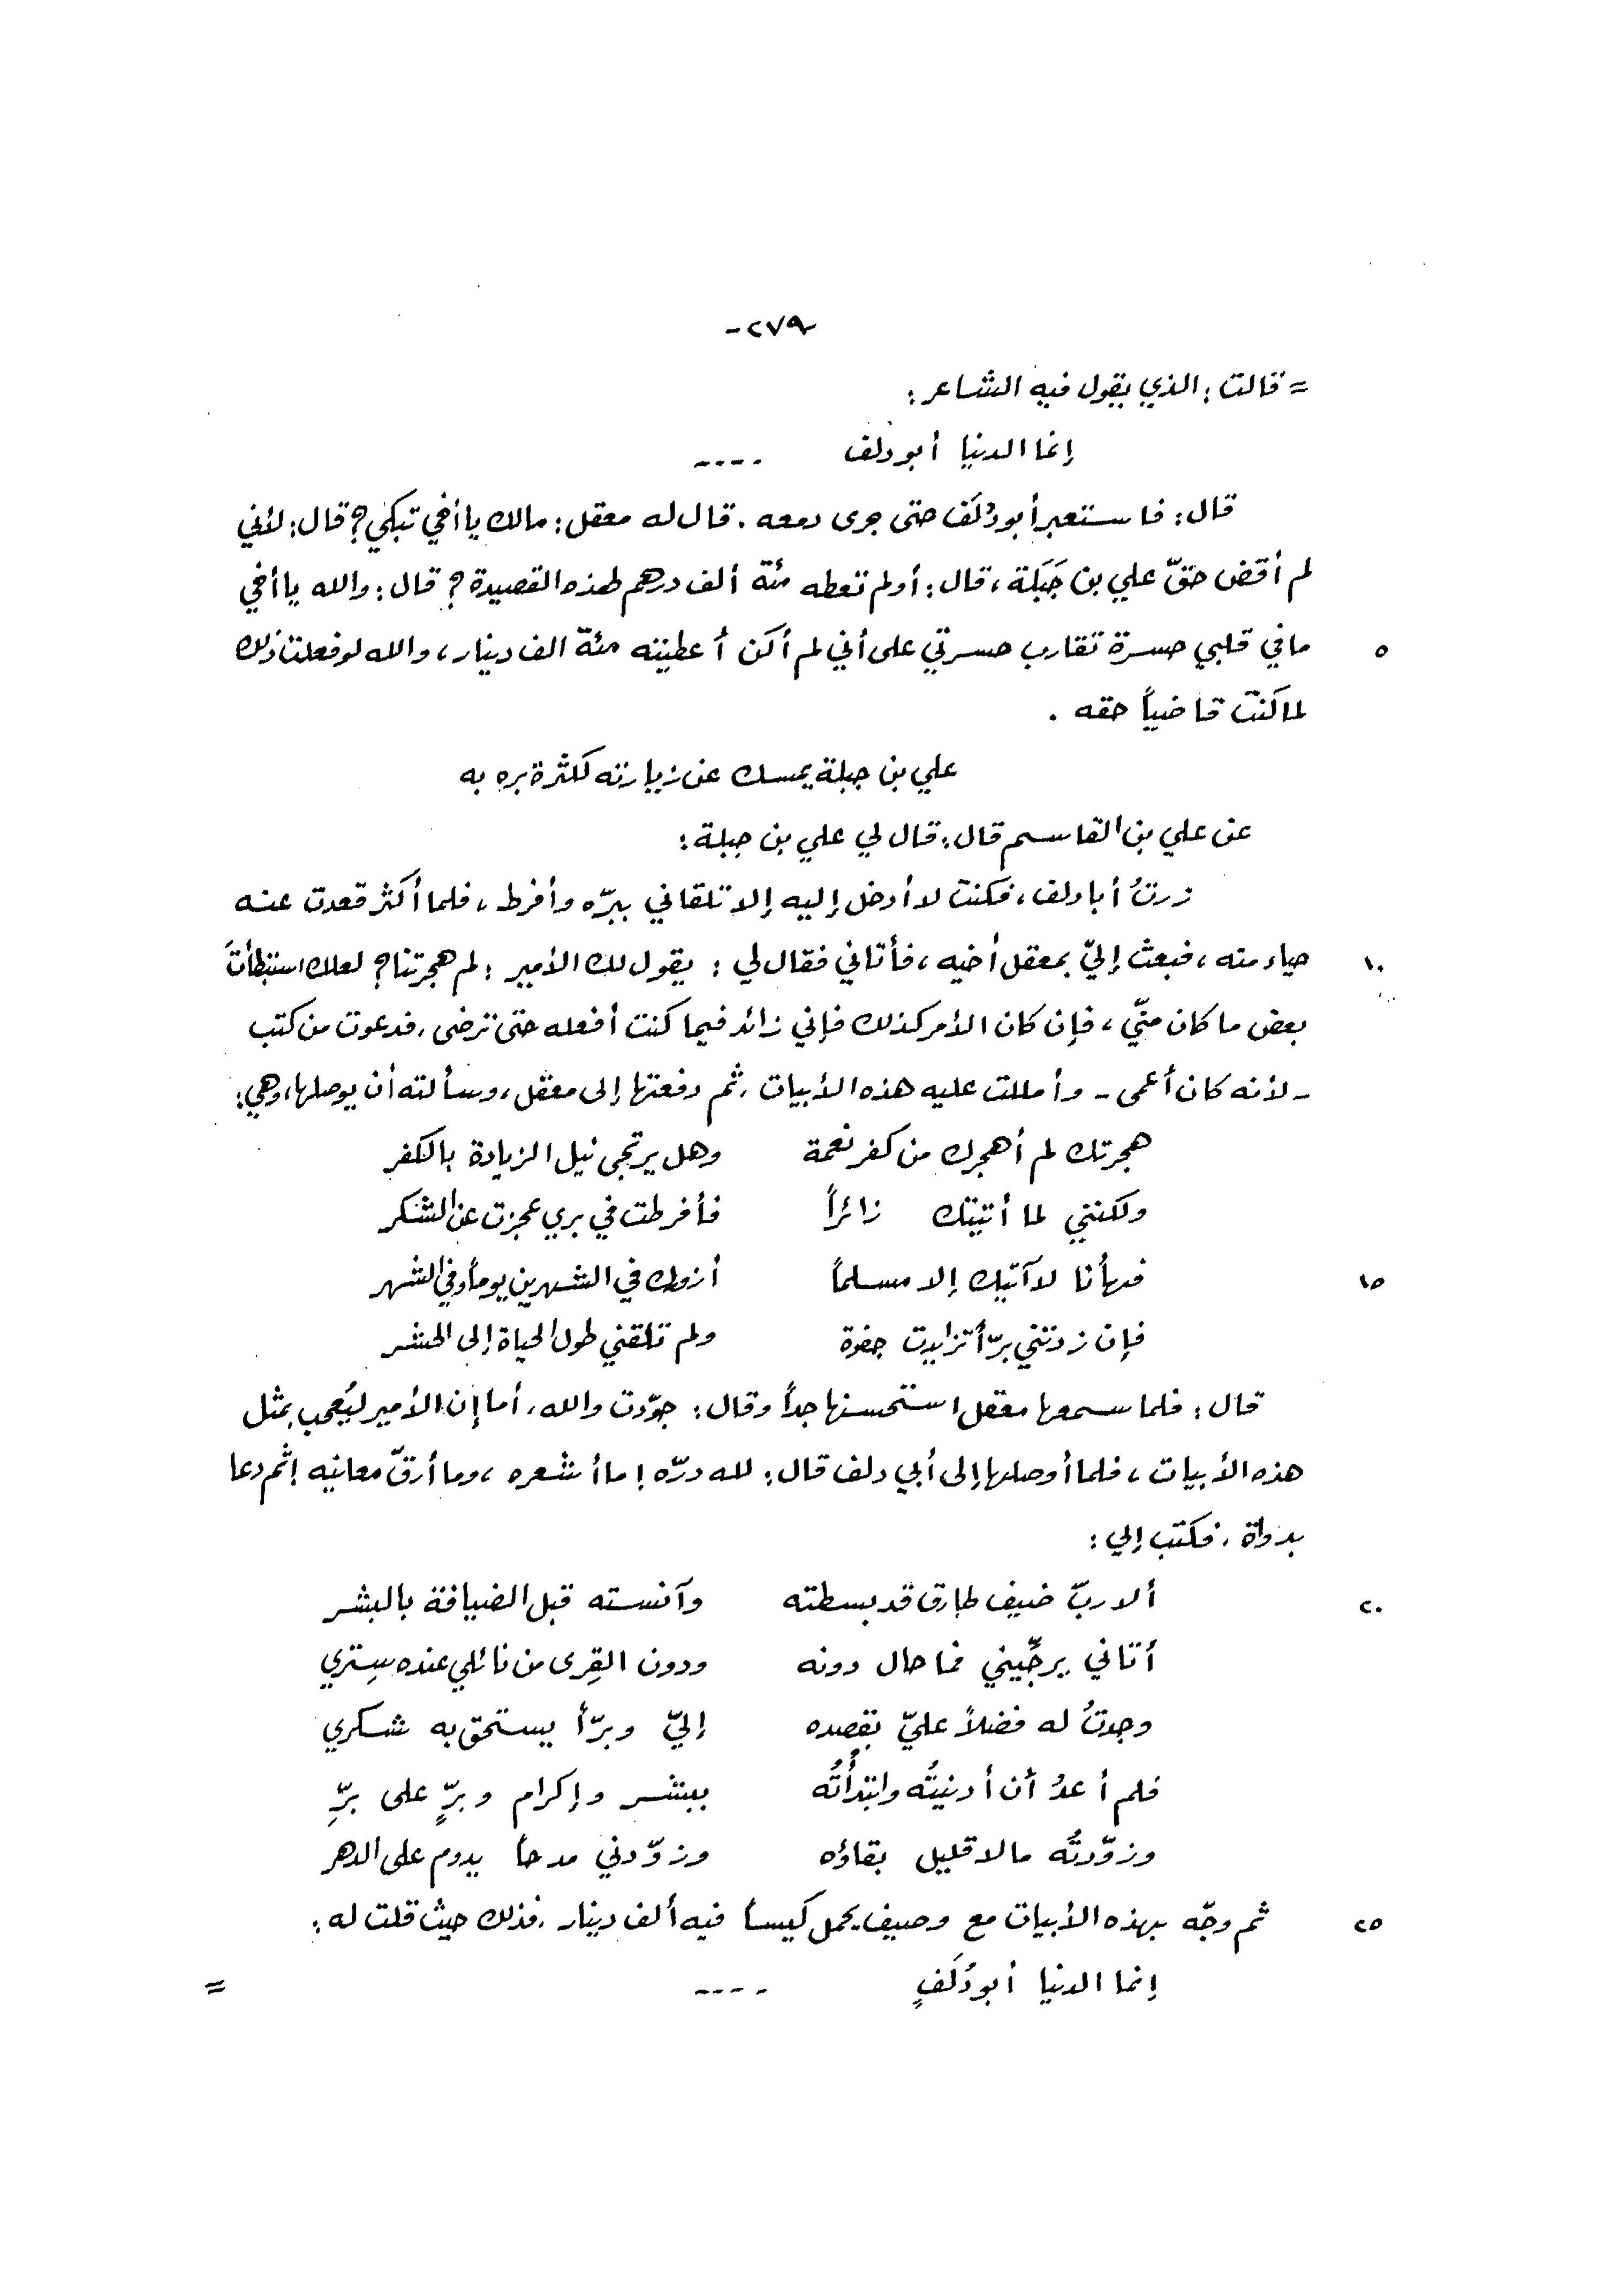 -٢٧٩-
= قالت: الذي يقول فيه الشاعر:
إنما الدنيا أبو دلف ----
قال: فاستعبر أبو دُلَف حتى جرى دمعه. قال له معقل: مالك يا أخي تبكي؟ قال: لأني
لم أقض حقّ علي بن جَبَلة، قال: أولم تعطه مئة ألف درهم لهذه القصيدة؟ قال: والله يا أخي
٥ ما في قلبي حسرة تقارب حسرتي على أني لم أكن أعطيته مئة الف دينار، والله لو فعلت ذلك
لما كنت قاضياً حقه .
علي بن جبلة يمسك عن زيارته لكثرة بره به
عن علي بن القاسم قال: قال لي علي بن جبلة:
زرتُ أبا دلف، فكنت لا أدخل إليه إلا تلقاني ببرّه وأفرط، فلما أكثر قعدت عنه
١٠ حياء منه، فبعث إليّ بمعقل أخيه، فأتاني فقال لي: يقول لك الأمير: لم هجرتنا؟ لعلك استبطأتَ
بعض ما كان منّي، فإن كان الأمر كذلك فإني زائد فيما كنت أفعله حتى ترضى، فدعوت من كتب
- لأنه كان أعمى - وأمللت عليه هذه الأبيات، ثم دفعتها إلى معقل، وسألته أن يوصلها، وهي:
هجرتك لم أهجرك من كفر نعمة وهل يرتجى نيل الزيادة بالكفر
ولكنني لما أتيتك زائراً فأفرطت في بري عجزت عن الشكر
١٥ فهأنا لا آتيك إلا مسلماً أزورك في الشهرين يوماً وفي الشهر
فإن زدتني برّاً تزايدت جفوة ولم تلقني طول الحياة إلى الحشر
قال: فلما سمعها معقل استحسنها جداً وقال: جوّدت والله، أما إن الأمير ليُعجب بمثل
هذه الأبيات، فلما أوصلها إلى أبي دلف قال: لله درّه! ما أشعره، وما أرقّ معانيه! ثم دعا
بدواة، فكتب إلي:
٢٠ ألا ربّ ضيف طارق قد بسطته وآنسته قبل الضيافة بالبشر
أتاني يرجِّيني فما حال دونه ودون القِرى من نائلي عنده سِتري
وجدتُ له فضلاً عليّ بقصده إليّ وبرّاً يستحق به شكري
فلم أعدُ أن أدنيتُه وابتدأتُه ببشر وإكرام وبرٍّ على برِّ
وزوّدتُه مالا قليل بقاؤه وزوّدني مدحاً يدوم على الدهر
٢٥ ثم وجّه بهذه الأبيات مع وصيف يحمل كيساً فيه ألف دينار، فذلك حيث قلت له:
إنما الدنيا أبو دُلَفٍ ----
=